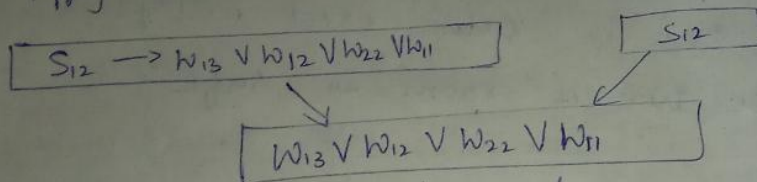 S₁₂ → W₁₃ ∨ W₁₂ ∨ W₂₂ ∨ W₁₁
S₁₂
W₁₃ ∨ W₁₂ ∨ W₂₂ ∨ W₁₁